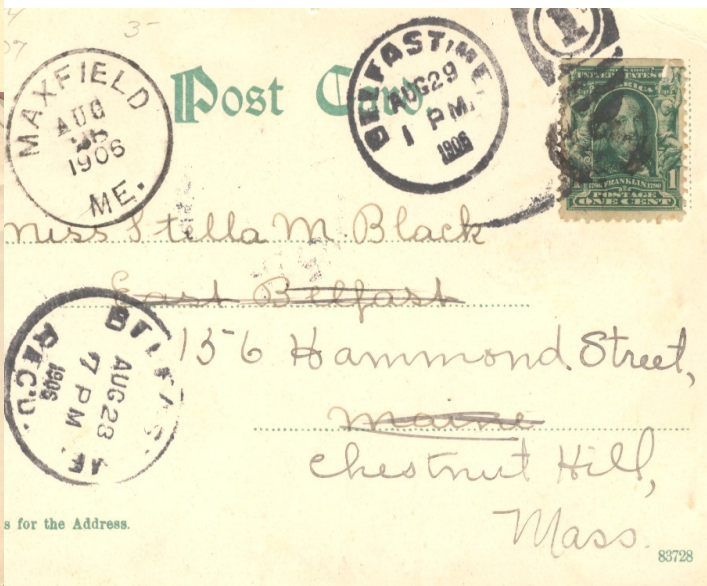 3-
Post Card
MAXFIELD
AUG
1906
ME.
BELFAST, ME.
AUG 29
1 PM.
1906
1
UNITED STATES
AMERICA
FRANKLIN
POSTAGE
ONE CENT
1
Miss Stella M. Black
East Belfast
156 Hammond Street,
Maine
Chestnut Hill,
Mass.
BELFAS
AUG 28
7 PM
1906
REC'D.
s for the Address.
83728